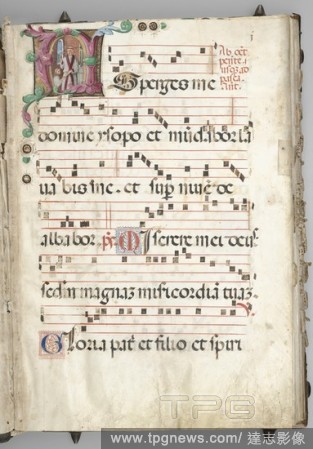 Asperges me
domine ysopo et mūdabor la
uabis me. et sup niuē de
albabor. ps. Miserere mei deus
sedm magnaz misericordiā tuaz.
Gloria patʳ et filio et spiri
TPG
www.tpgnews.com/ 達志影像